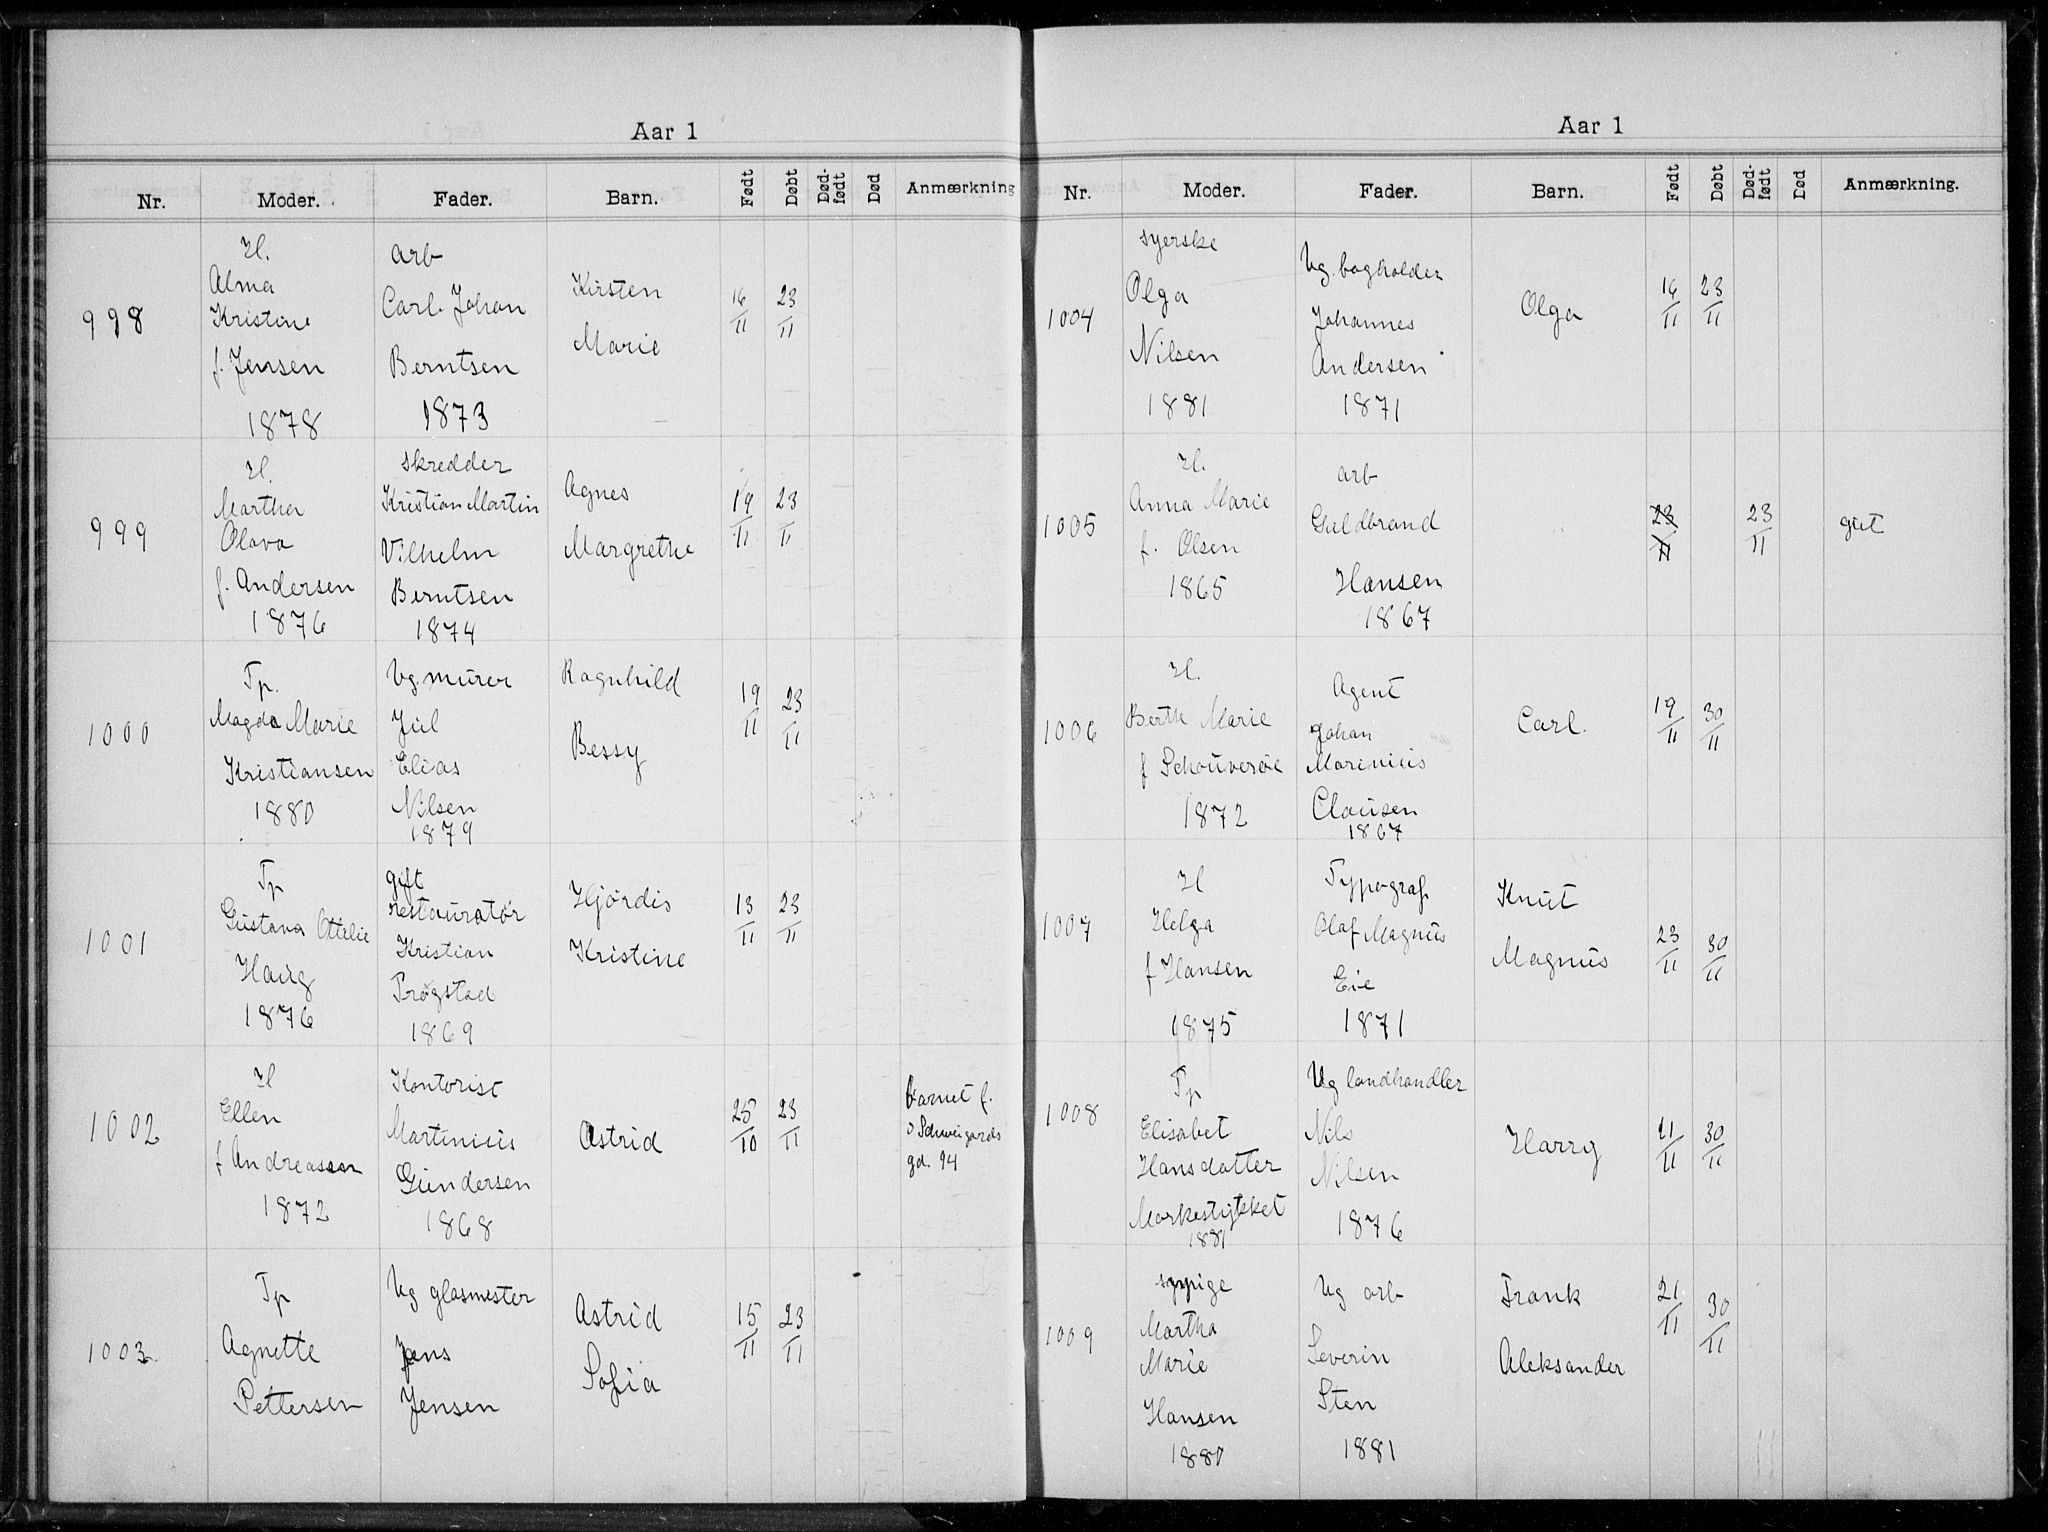 Aar 1
Nr. Moder. Fader. Barn. Født Døbt Død-født Død Anmærkning
998
H.
Alma
Kristine
f. Jensen
1878
arb
Carl Johan
Berntsen
1873
Kirsten
Marie
16/11 23/11
999
H.
Martha
Olava
f. Andersen
1876
skredder
Kristian Martin
Vilhelm
Berntsen
1874
Agnes
Margrethe
19/11 23/11
1000
Tp.
Magda Marie
Kristiansen
1880
Ug. murer
Juul
Elias
Nilsen
1879
Ragnhild
Bessy
19/11 23/11
1001
Tp
Gustava Otilie
Haug
1876
gift
restauratør
Kristian
Trøgstad
1869
Hjørdis
Kristine
13/11 23/11
1002
H
Ellen
f Andreassen
1872
Kontorist
Martinius
Gundersen
1868
Astrid
25/10 23/11
Barnet f.
o Schweigards
gd. 94
1003
Tp
Agnette
Pettersen
Ug glasmester
Jens
Jensen
Astrid
Sofia
15/11 23/11
Aar 1
Nr. Moder. Fader. Barn. Født Døbt Død-født Død Anmærkning.
1004
syerske
Olga
Nilsen
1881
Ug. bogholder
Johannes
Andersen
1871
Olga
16/11 23/11
1005
H.
Anna Marie
f. Olsen
1865
arb
Guldbrand
Hansen
1867
23/11 23/11
gut
1006
H.
Berth Marie
f Schouverøe
1872
Agent
Johan
Marinius
Clausen
1867
Carl.
19/11 30/11
1007
H
Helga
f Hansen
1875
Typograf
Olaf Magnus
Eie
1871
Knut
Magnus
23/11 30/11
1008
Tp
Elisabet
Hansdatter
Markestykket
1881
Ug landhandler
Nils
Nilsen
1876
Harry
21/11 30/11
1009
sypige
Martha
Marie
Hansen
1880
Ug arb
Severin
Sten
1881
Frank
Aleksander
21/11 30/11